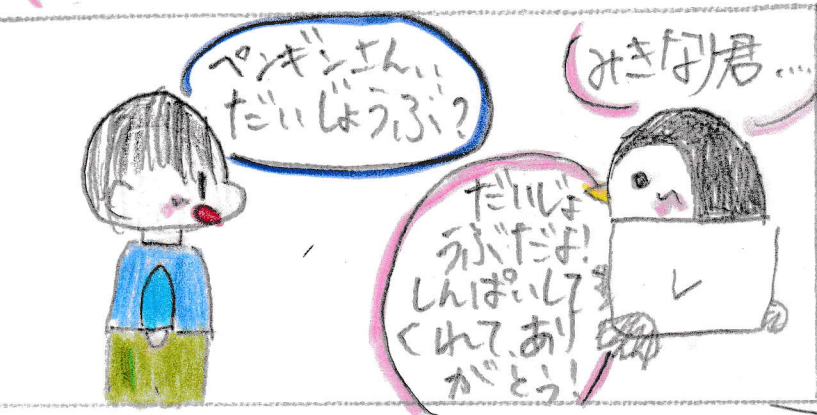 ペンギンさん、
だいじょうぶ？
みきなり君…
だいじょ
うぶだよ！
しんぱいして
くれて、あり
がとう！